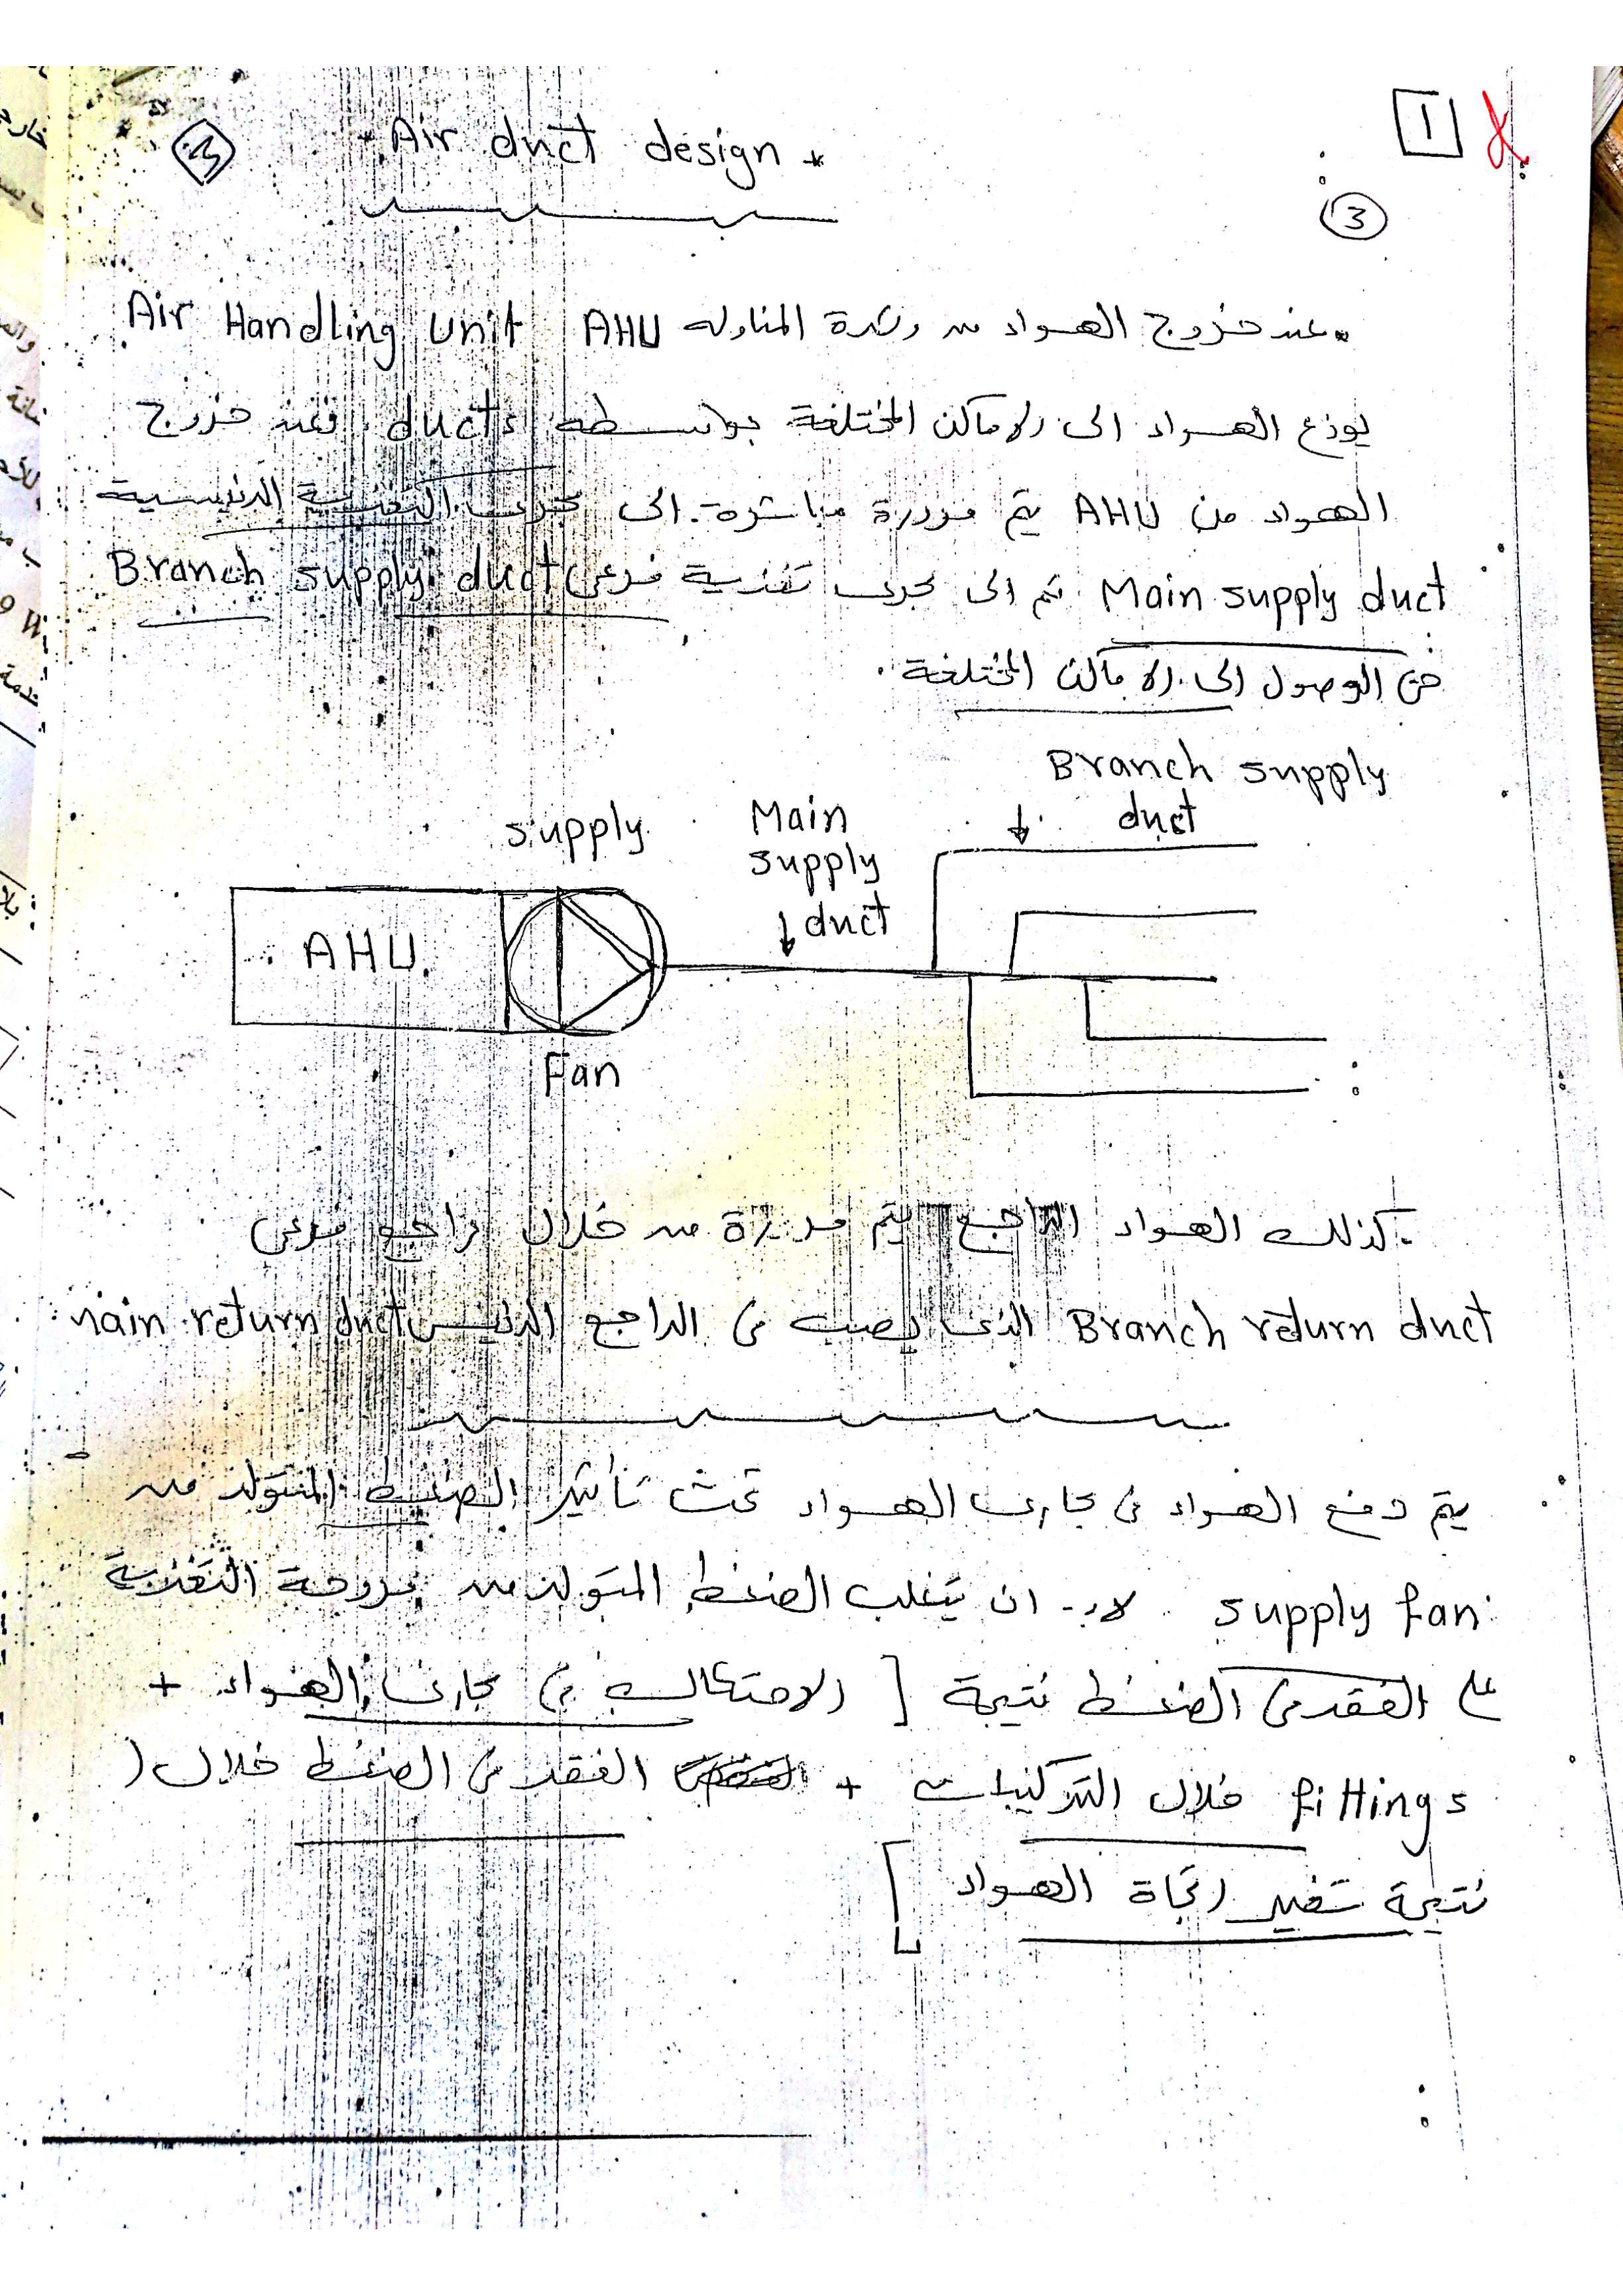 1
Air duct design
3
عند خروج الهواء من وحدة المناوله AHU Air Handling Unit
يوزع الهواء الى الاماكن المختلفة بواسطه ducts فعند خروج
الهواء من AHU يتم مرورة مباشرة الى مجرى التغذية الرئيسية
Main supply duct ثم الى مجرى تغذية فرعى Branch supply duct
حتى الوصول الى الاماكن المختلفة .
Branch supply
duct
supply
Main
supply
duct
AHU
Fan
كذلك الهواء الراجع يتم مرورة من خلال راجع فرعى
Branch return duct الذى يصب فى الراجع الرئيسى main return duct
يتم دفع الهواء فى مجارى الهواء تحت تأثير الضغط المتولد من
supply fan لابد ان يتغلب الضغط المتولد من مروحة التغذية
على الفقد فى الضغط نتيجة [ الاحتكاك فى مجارى الهواء +
الفقد فى الضغط خلال + خلال التركيبات fittings
نتيجة تغير اتجاة الهواء ]